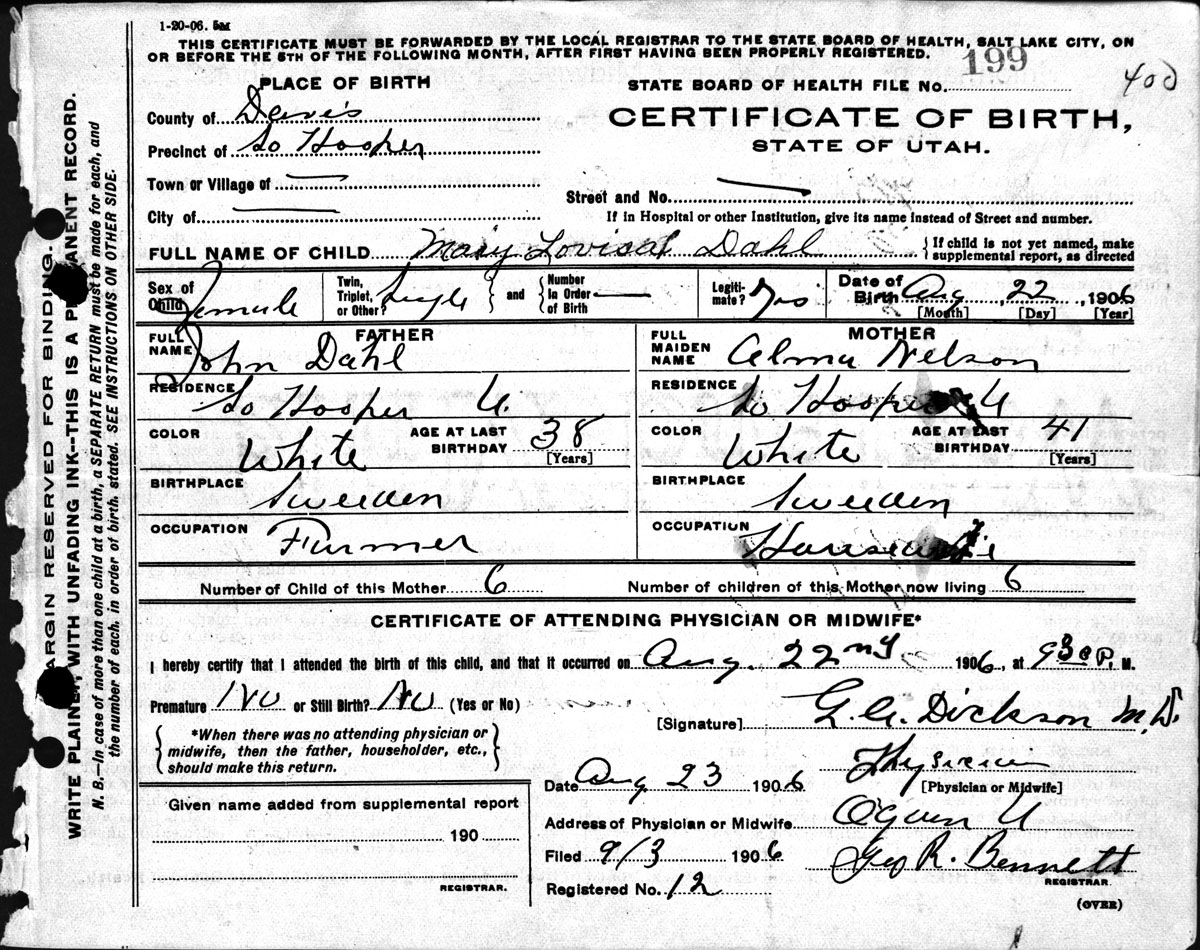 1-20-06. 5M
THIS CERTIFICATE MUST BE FORWARDED BY THE LOCAL REGISTRAR TO THE STATE BOARD OF HEALTH, SALT LAKE CITY, ON
OR BEFORE THE 5TH OF THE FOLLOWING MONTH, AFTER FIRST HAVING BEEN PROPERLY REGISTERED.
199
400
PLACE OF BIRTH
STATE BOARD OF HEALTH FILE NO.
County of Davis
CERTIFICATE OF BIRTH,
STATE OF UTAH.
Precinct of So Hooper
Town or Village of —
Street and No. —
City of —
If in Hospital or other Institution, give its name instead of Street and number.
FULL NAME OF CHILD Mary Dahl
{If child is not yet named, make
supplemental report, as directed
Sex of Child Female
Twin, Triplet, or Other? Single } and { Number In Order of Birth —
Legitimate? Yes
Date of Birth Aug 22, 1906
[Month] [Day] [Year]
FATHER
FULL NAME John Dahl
RESIDENCE So Hooper U.
COLOR White
AGE AT LAST BIRTHDAY 38 [Years]
BIRTHPLACE Sweden
OCCUPATION Farmer
MOTHER
FULL MAIDEN NAME Alma Nelson
RESIDENCE So Hooper U
COLOR White
AGE AT LAST BIRTHDAY 41 [Years]
BIRTHPLACE Sweden
OCCUPATION Housewife
Number of Child of this Mother 6
Number of children of this Mother now living 6
CERTIFICATE OF ATTENDING PHYSICIAN OR MIDWIFE*
I hereby certify that I attended the birth of this child, and that it occurred on Aug. 22nd 1906, at 930 P. M.
Premature No or Still Birth? No (Yes or No)
[Signature] Dickson M.D.
{*When there was no attending physician or
midwife, then the father, householder, etc.,
should make this return.}
Physician
[Physician or Midwife]
Date Aug 23 1906
Given name added from supplemental report
190
REGISTRAR.
Address of Physician or Midwife Ogden U
Filed 9/3 1906
Geo R. Bennett
REGISTRAR
Registered No. 12
(OVER)
MARGIN RESERVED FOR BINDING.
WRITE PLAINLY, WITH UNFADING INK--THIS IS A PERMANENT RECORD.
N. B.—In case of more than one child at a birth, a SEPARATE RETURN must be made for each, and
the number of each, in order of birth, stated. SEE INSTRUCTIONS ON OTHER SIDE.